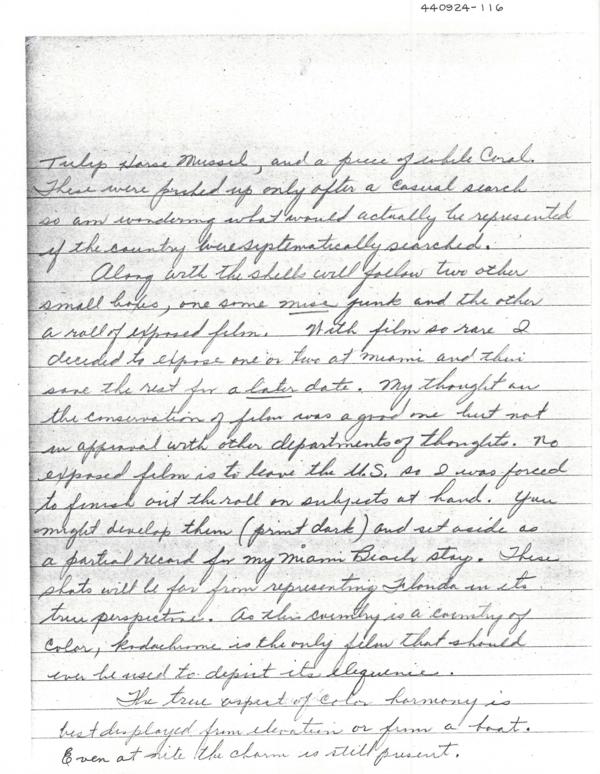 440924-116
Tulip Horse Mussel, and a piece of while Coral.
These were picked up only after a casual search
so am wondering what would actually be represented
if the country were systematically searched.
Along with the shells will follow two other
small boxes, one some misc junk and the other
a roll of exposed film. With film so rare I
decided to expose one or two at Miami and then
save the rest for a later date. My thought on
the conservation of film was a good one but not
in approval with other departments of thoughts. No
exposed film is to leave the U.S. so I was forced
to finish out the roll on subjects at hand. You
might develop them (print dark) and set aside as
a partial record for my Miami Beach stay. These
shots will be far from representing Florida in its
true perspective. As this country is a country of
color, Kodachrome is the only film that should
ever be used to depict its elequence.
The true aspect of color harmony is
best displayed from elevation or from a boat.
Even at nite the charm is still present.